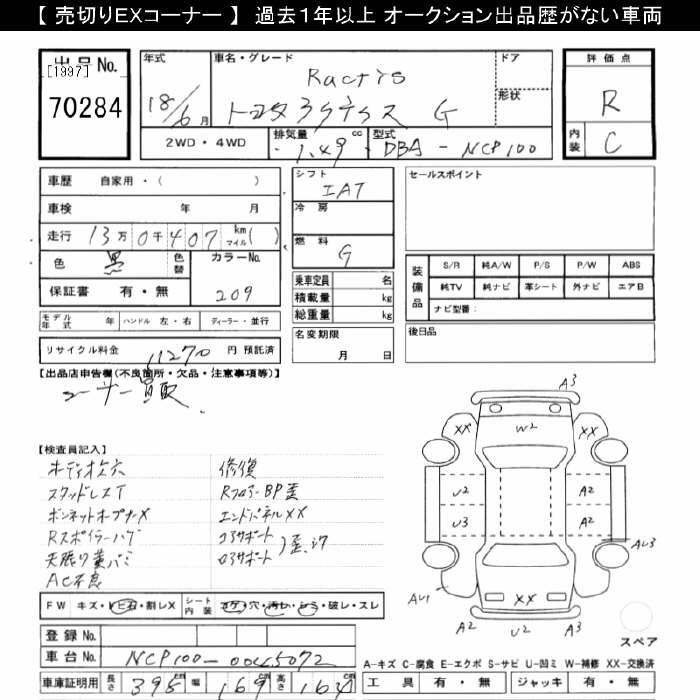 【 売切りEXコーナー 】 過去1年以上 オークション出品歴がない車両
出品No.
[1997]
70284
年式
18/6月
車名・グレード
Ractis
トヨタラクティス G
ドア
形状
2WD・4WD
排気量
1.49 cc
型式
DBA - NCP100
評価点
R
内装
C
車歴 自家用・( )
車検 年 月
走行 13万0千407 km マイル( )
色 黒 色替
カラーNo.
209
保証書 有・無
シフト
IAT
冷房
燃料
G
乗車定員 名
積載量 kg
総重量 kg
セールスポイント
装備品
S/R 純A/W P/S P/W ABS
純TV 純ナビ 革シート 外ナビ エアB
ナビ型番:
モデル年式 年 ハンドル 左・右 ディーラー・並行
リサイクル料金 11270 円 預託済
名変期限
月 日
後日品
【出品店申告欄(不良箇所・欠品・注意事項等)】
ユーザー買取
【検査員記入】
オーディオ欠穴
スタッドレスT
ボンネットオープナーX
Rスポイラーハゲ
天張り
AC不良
修復
RフロアーBP歪
エンドパネルXX
サポート
サポート
歪
FW キズ・トビ石・割レX
シート内装 コゲ・穴・汚レ・シミ・破レ・スレ
登録No.
車台No. NCP100-0045072
車庫証明用 長さ 395 幅 169 高さ 164
A3
XX
W2
XX
U2
A2
U3
A2
AU3
AU1
XX
A2
U2
A3
スペア
A-キズ C-腐食 E-エクボ S-サビ U-凹ミ W-補修 XX-交換済
工具 有・無 ジャッキ 有・無